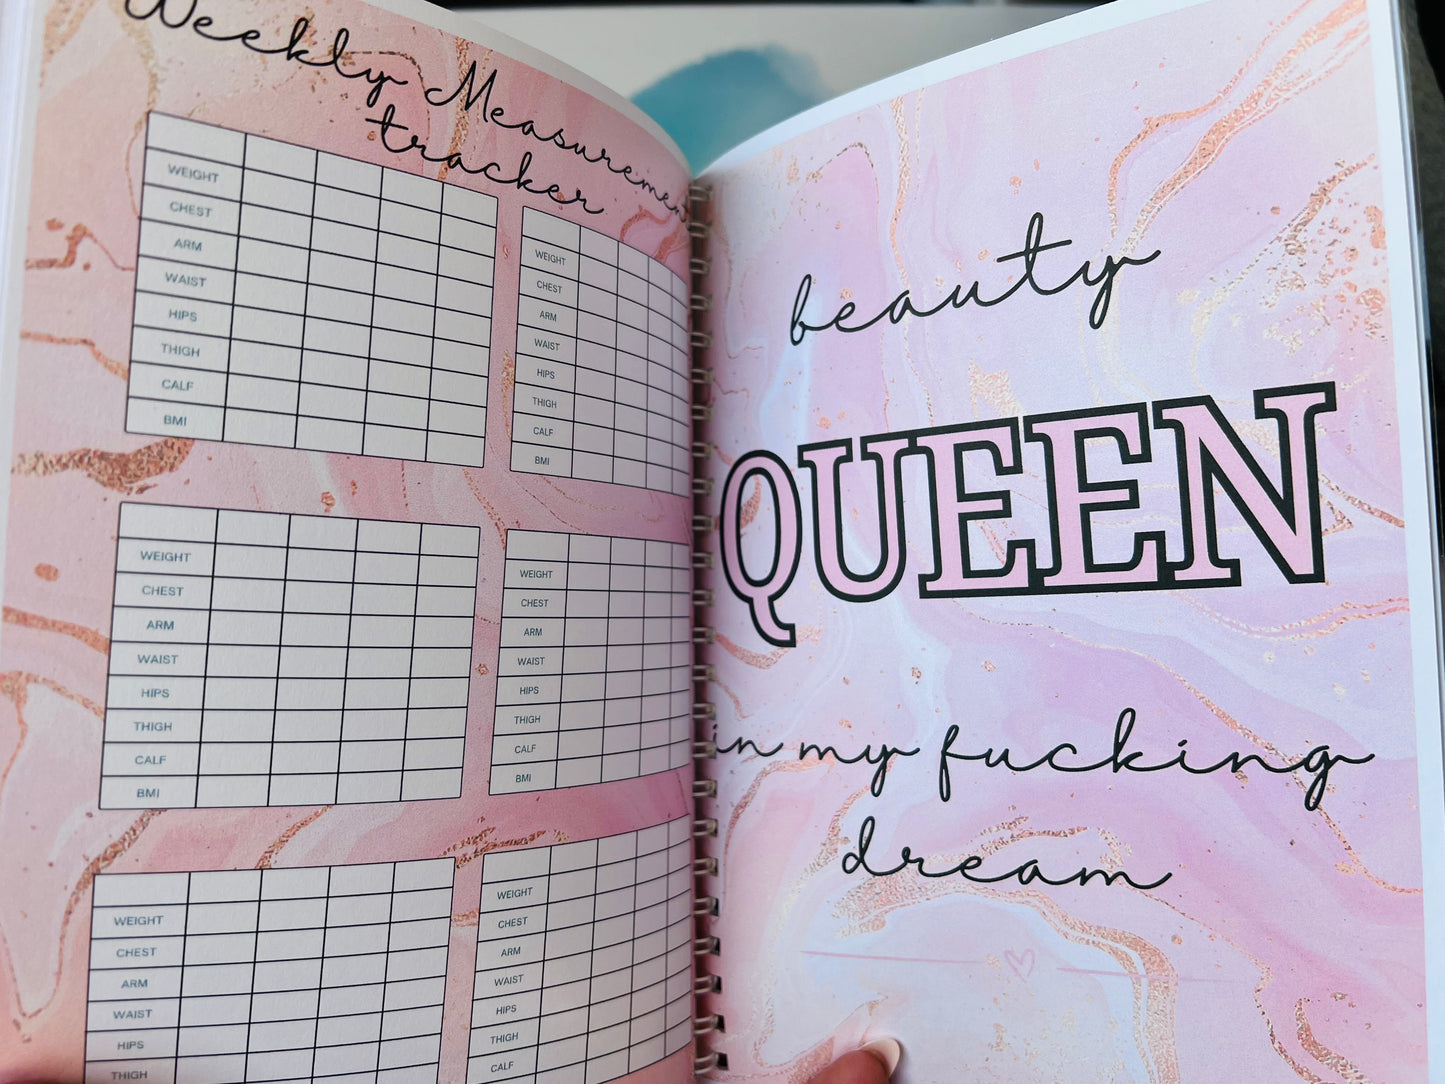 Weekly Measurement
tracker
WEIGHT
CHEST
ARM
WAIST
HIPS
THIGH
CALF
BMI
WEIGHT
CHEST
ARM
WAIST
HIPS
THIGH
CALF
BMI
WEIGHT
CHEST
ARM
WAIST
HIPS
THIGH
CALF
BMI
WEIGHT
CHEST
ARM
WAIST
HIPS
THIGH
CALF
BMI
WEIGHT
CHEST
ARM
WAIST
HIPS
THIGH
WEIGHT
CHEST
ARM
WAIST
HIPS
THIGH
CALF
beauty
QUEEN
in my fucking
dream